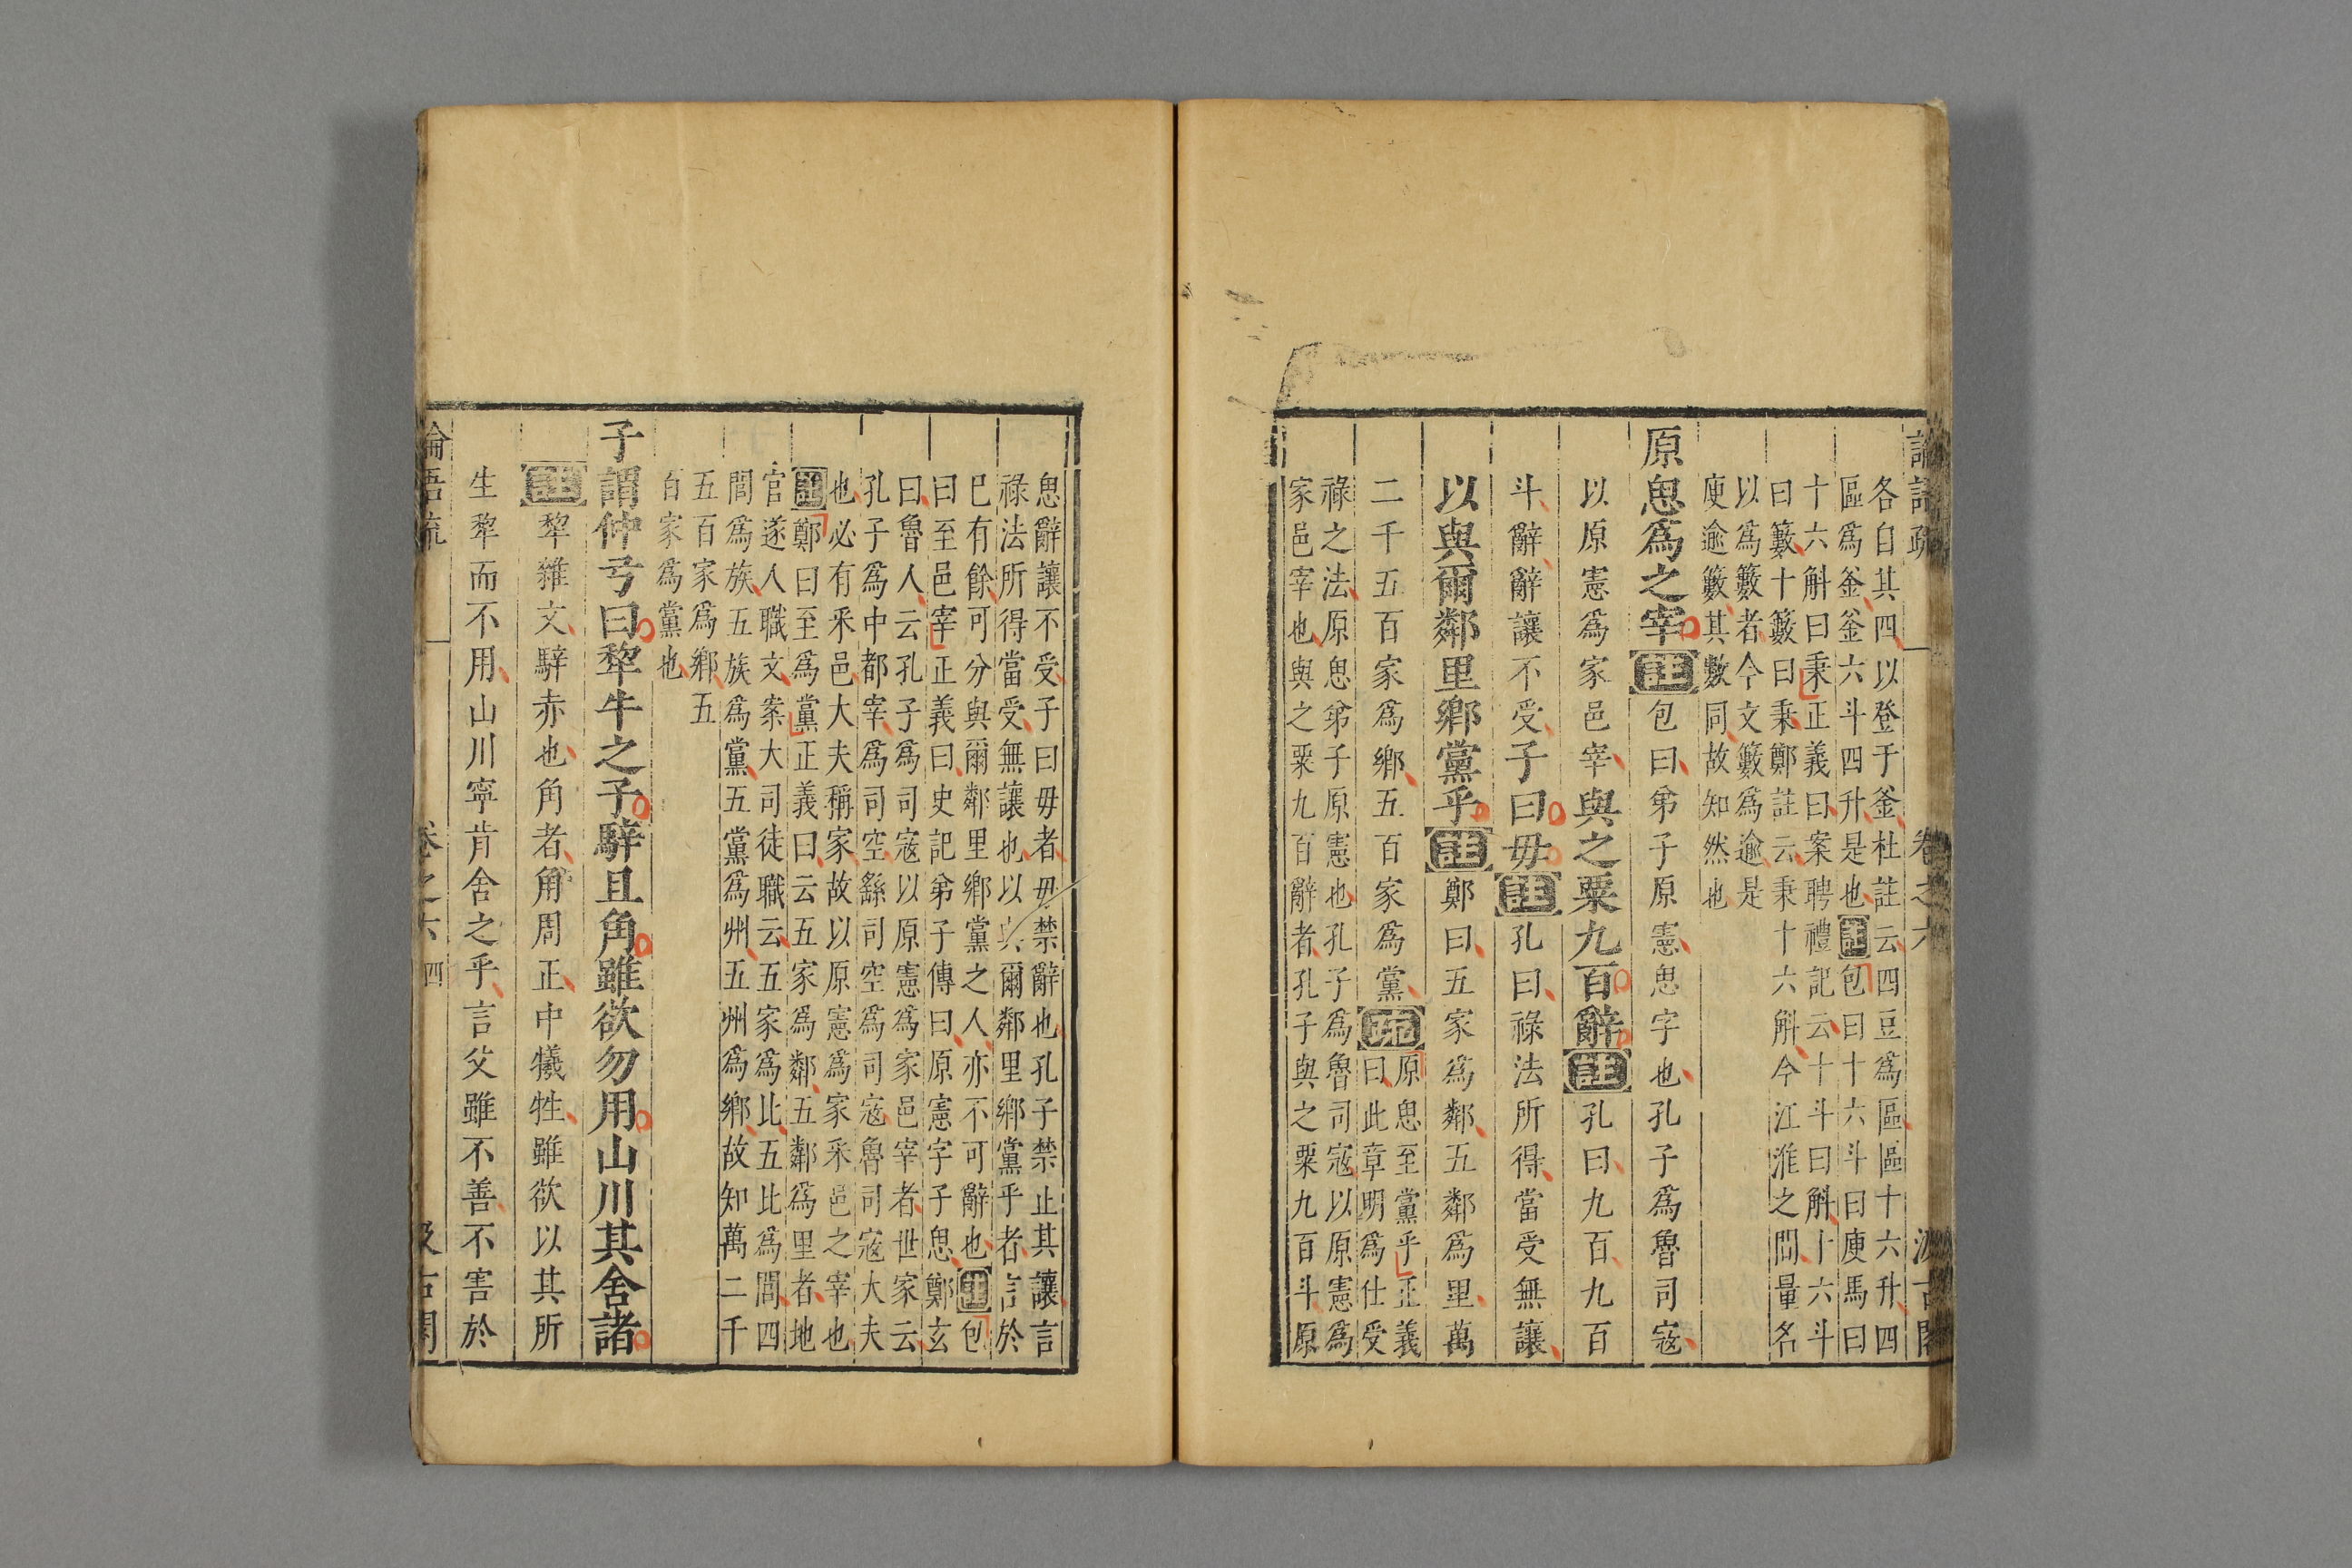 各自其四以登于釜杜註云四豆爲區區十六升四
區爲釜釜六斗四升是也註包曰十六斗曰庾馬曰
十六斛曰秉正義曰案聘禮記云十斗曰斛十六斗
曰籔十籔曰秉鄭註云秉十六斛今江淮之間量名
以爲籔者今文籔爲逾是
庾逾籔其數同故知然也
原思爲之宰註包曰弟子原憲思字也孔子爲魯司寇
以原憲爲家邑宰與之粟九百辭註孔曰九百九百
斗辭辭讓不受子曰毋註孔曰祿法所得當受無讓
以與爾鄰里鄉黨乎註鄭曰五家爲鄰五鄰爲里萬
二千五百家爲鄉五百家爲黨疏原思至黨乎正義
曰此章明爲仕受
祿之法原思弟子原憲也孔子爲魯司寇以原憲爲
家邑宰也與之粟九百辭者孔子與之粟九百斗原
思辭讓不受子曰毋者毋禁辭也孔子禁止其讓言
祿法所得當受無讓也以與爾鄰里鄉黨乎者言於
已有餘可分與爾鄰里鄉黨之人亦不可辭也註包
曰至邑宰正義曰史記弟子傳曰原憲字子思鄭玄
曰魯人云孔子爲司寇以原憲爲家邑宰者世家云
孔子爲中都宰爲司空繇司空爲司寇魯司寇大夫
也必有采邑大夫稱家故以原憲爲家采邑之宰也
註鄭曰至爲黨正義曰云五家爲鄰五鄰爲里者地
官遂人職文案大司徒職云五家爲比五比爲閭四
閭爲族五族爲黨五黨爲州五州爲鄉故知萬二千
五百家爲鄉五
百家爲黨也
子謂仲弓曰犂牛之子騂且角雖欲勿用山川其舍諸
註犂雜文騂赤也角者角周正中犧牲雖欲以其所
生犂而不用山川寧肯舍之乎言父雖不善不害於
論語疏
卷之六
四
汲古閣